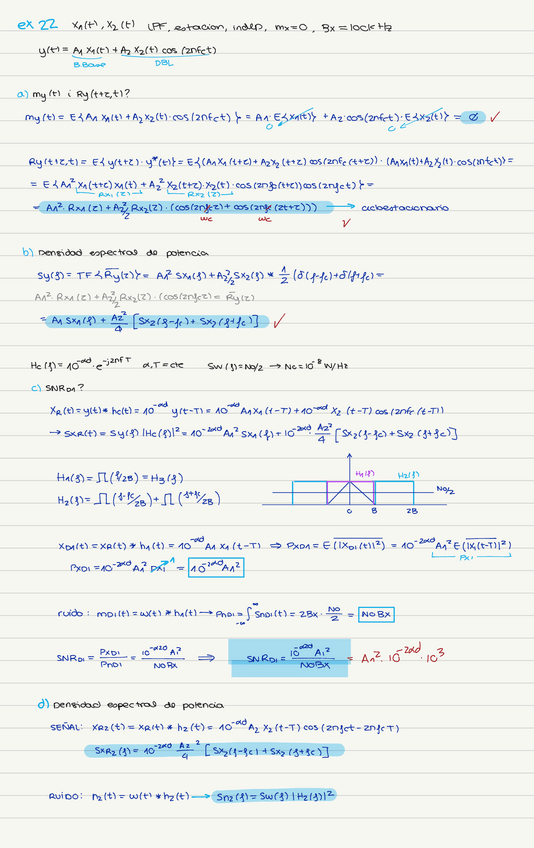 ex 22 X₁(t), X₂(t) LPF, estacion, indep, mx=0, Bx=10cKHz
y(t) = A₁ X₁(t) + A₂ X₂(t) cos (2πfct)
B.Base DBL
a) my(t) i Ry(t+τ,t)?
my(t) = E{A₁ X₁(t) + A₂ X₂(t)·cos(2πfct)} = A₁·E{X₁(t)} + A₂·cos(2πfct)·E{X₂(t)} = ∅ ✓
0 0
Ry(t+τ,t) = E{y(t+τ)·y*(t)} = E{(A₁X₁(t+τ)+A₂X₂(t+τ)cos(2πfc(t+τ)))·(A₁X₁(t)+A₂X₂(t)·cos(2πfct)} =
= E{A₁² X₁(t+τ)X₁(t) + A₂² X₂(t+τ)·X₂(t)·cos(2πfc(t+τ))cos(2πfct)} =
Rx₁(τ) Rx₂(τ)
= A₁²·Rx₁(τ) + A₂²/2 Rx₂(τ)·(cos(2πfcτ) + cos(2πfc(2t+τ))) → cicloestacionario
wc wc ✓
b) Densidad espectral de potencia
Sy(f) = TF{R̄y(τ)} = A₁² Sx₁(f) + A₂²/2 Sx₂(f) * 1/2 (δ(f-fc)+δ(f+fc) =
A₁² Rx₁(τ) + A₂²/2 Rx₂(τ)·(cos(2πfcτ) = R̄y(τ)
= A₁ Sx₁(f) + A₂²/4 [Sx₂(f-fc) + Sx₂(f+fc)] ✓
Hc(f) = 10^-αd · e^-j2πfT α,T=cte Sw(f)=No/2 → No=10⁻⁸ W/Hz
c) SNRD₁?
XR(t) = y(t) * hc(t) = 10^-αd y(t-T) = 10^-αd A₁X₁(t-T) + 10^-αd X₂ (t-T) cos(2πfc (t-T))
→ SXR(t) = Sy(f) |Hc(f)|² = 10^-2αd A₁² Sx₁(f) + 10^-2αd · A₂²/4 [Sx₂(f-fc) + Sx₂(f+fc)]
H₁(f) = ∏(f/2B) = H₃(f)
H₂(f) = ∏(f-fc/2B) + ∏(f+fc/2B)
H₁(f) H₂(f)
No/2
0 B 2B
XD₁(t) = XR(t) * h₁(t) = 10^-αd A₁ X₁(t-T) ⇒ PXD₁ = E(|XD₁(t)|²) = 10^-2αd A₁² E(|X₁(t-T)|²)
Px₁
PXD₁ = 10^-2αd A₁² Px₁ = 10^-2αd A₁²
1
ruido: nD₁(t) = w(t) * h₁(t) → PnD₁ = ∫ SnD₁(t) = 2Bx · No/2 = NoBx
SNRD₁ = PXD₁/PnD₁ = 10^-2αd A₁²/NoBx ⇒ SNRD₁ = 10^-α2d A₁²/NoBx = A₁² · 10^-2αd · 10³
d) Densidad espectral de potencia
SEÑAL: XR₂(t) = XR(t) * h₂(t) = 10^-αd A₂ X₂(t-T) cos(2πfct - 2πfcT)
SXR₂(f) = 10^-2αd A₂²/4 [Sx₂(f-fc) + Sx₂(f+fc)]
RUIDO: n₂(t) = w(t) * h₂(t) → Sn₂(f) = Sw(f) |H₂(f)|²